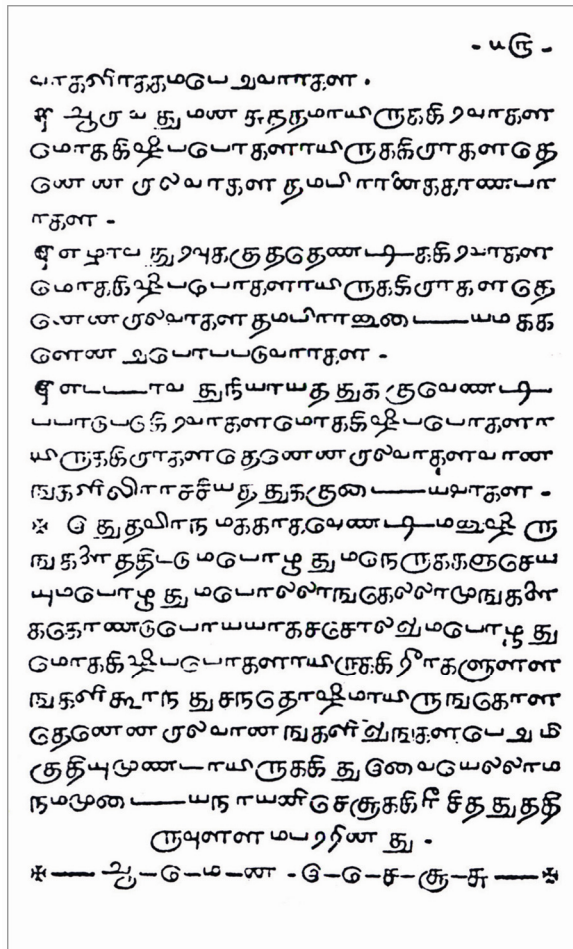 - ய௫ -
வாகளிரககமபெறுவாரகள .
¶ ஆறாவ து மன சுததமாயிருககிறவாகள
மொககிஷபபெறாகளாயிருககிறாகளதெ
னென றாலவாகள தமபிரானைககாணபா
ரகள -
¶ எழாவ துரவுககுததெணடிககிறவாகள
மொககிஷபபெறாகளாயிருககிறாகளதெ
னெனறாலவாகளதமபிரானுடையமகக
ளென றுபெரபபடுவாரகள -
¶ எடடாவ துநியாயத துககுவெணடி
பபாடுபடுகிறவாகளமொககிஷபபெறாகளா
யிருககிறாகளதெனெனறாலவாகளவான
ஙகளிலிராசசியத துககுடையவாகள -
✠ இ துதவிரநமககாகவெணடிமனுஷிரு
ஙகளைததிடடுமபொழு துமநெருககளுசெய
யுமபொழு துமபொலலாஙகெலலாமுஙகளை
ககொணடுபொயயாகசசொலலுமபொழு து
மொககிஷபபெறாகளாயிருககிறீரகளுளள
ஙகளிகூரந துசநதொஷமாயிருஙகொள
தெனெனறாலவானஙகளிலுஙகளபெறுமி
குதியுமுணடாயிருககி துஇவையெலலாம
நமமுடையநாயனிசெசூககிரீசித துததி
ருவுளளமபறறின து -
✠— ஆ-மெ-ன - செ-சூ-சு —✠